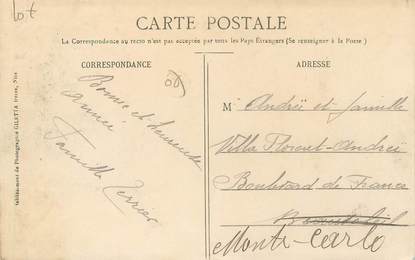 lot
CARTE POSTALE
La Correspondance au recto n'est pas acceptée par tous les Pays Étrangers (Se renseigner à la Poste)
CORRESPONDANCE
Bonne et heureuse
année
Famille Terrier
ADRESSE
M André et famille
Villa Florent-André
Boulevard de France
Beausoleil
Monte-Carlo
Établissement de Photographie GILETTA frères, Nice